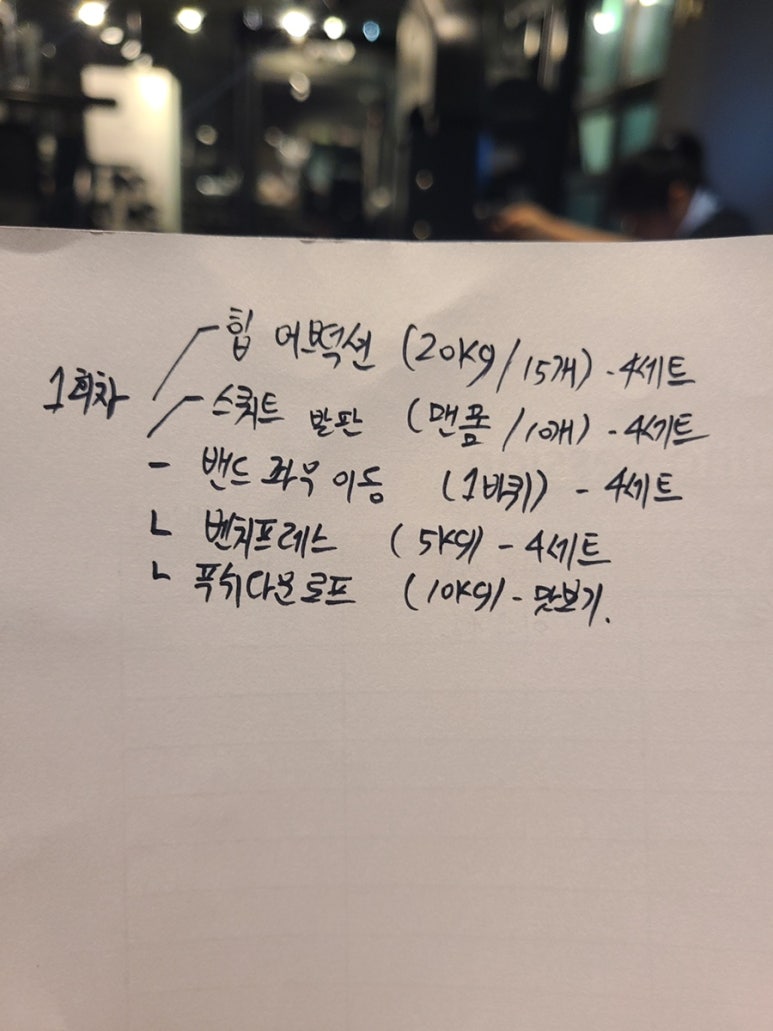 1회차
힙 어브덕션 (20kg/15개) - 4세트
스쿼트 발판 (맨몸/10개) - 4세트
- 밴드 좌우 이동 (1바퀴) - 4세트
ㄴ 벤치프레스 (5kg) - 4세트
ㄴ 푸쉬다운 로프 (10kg) - 맛보기.